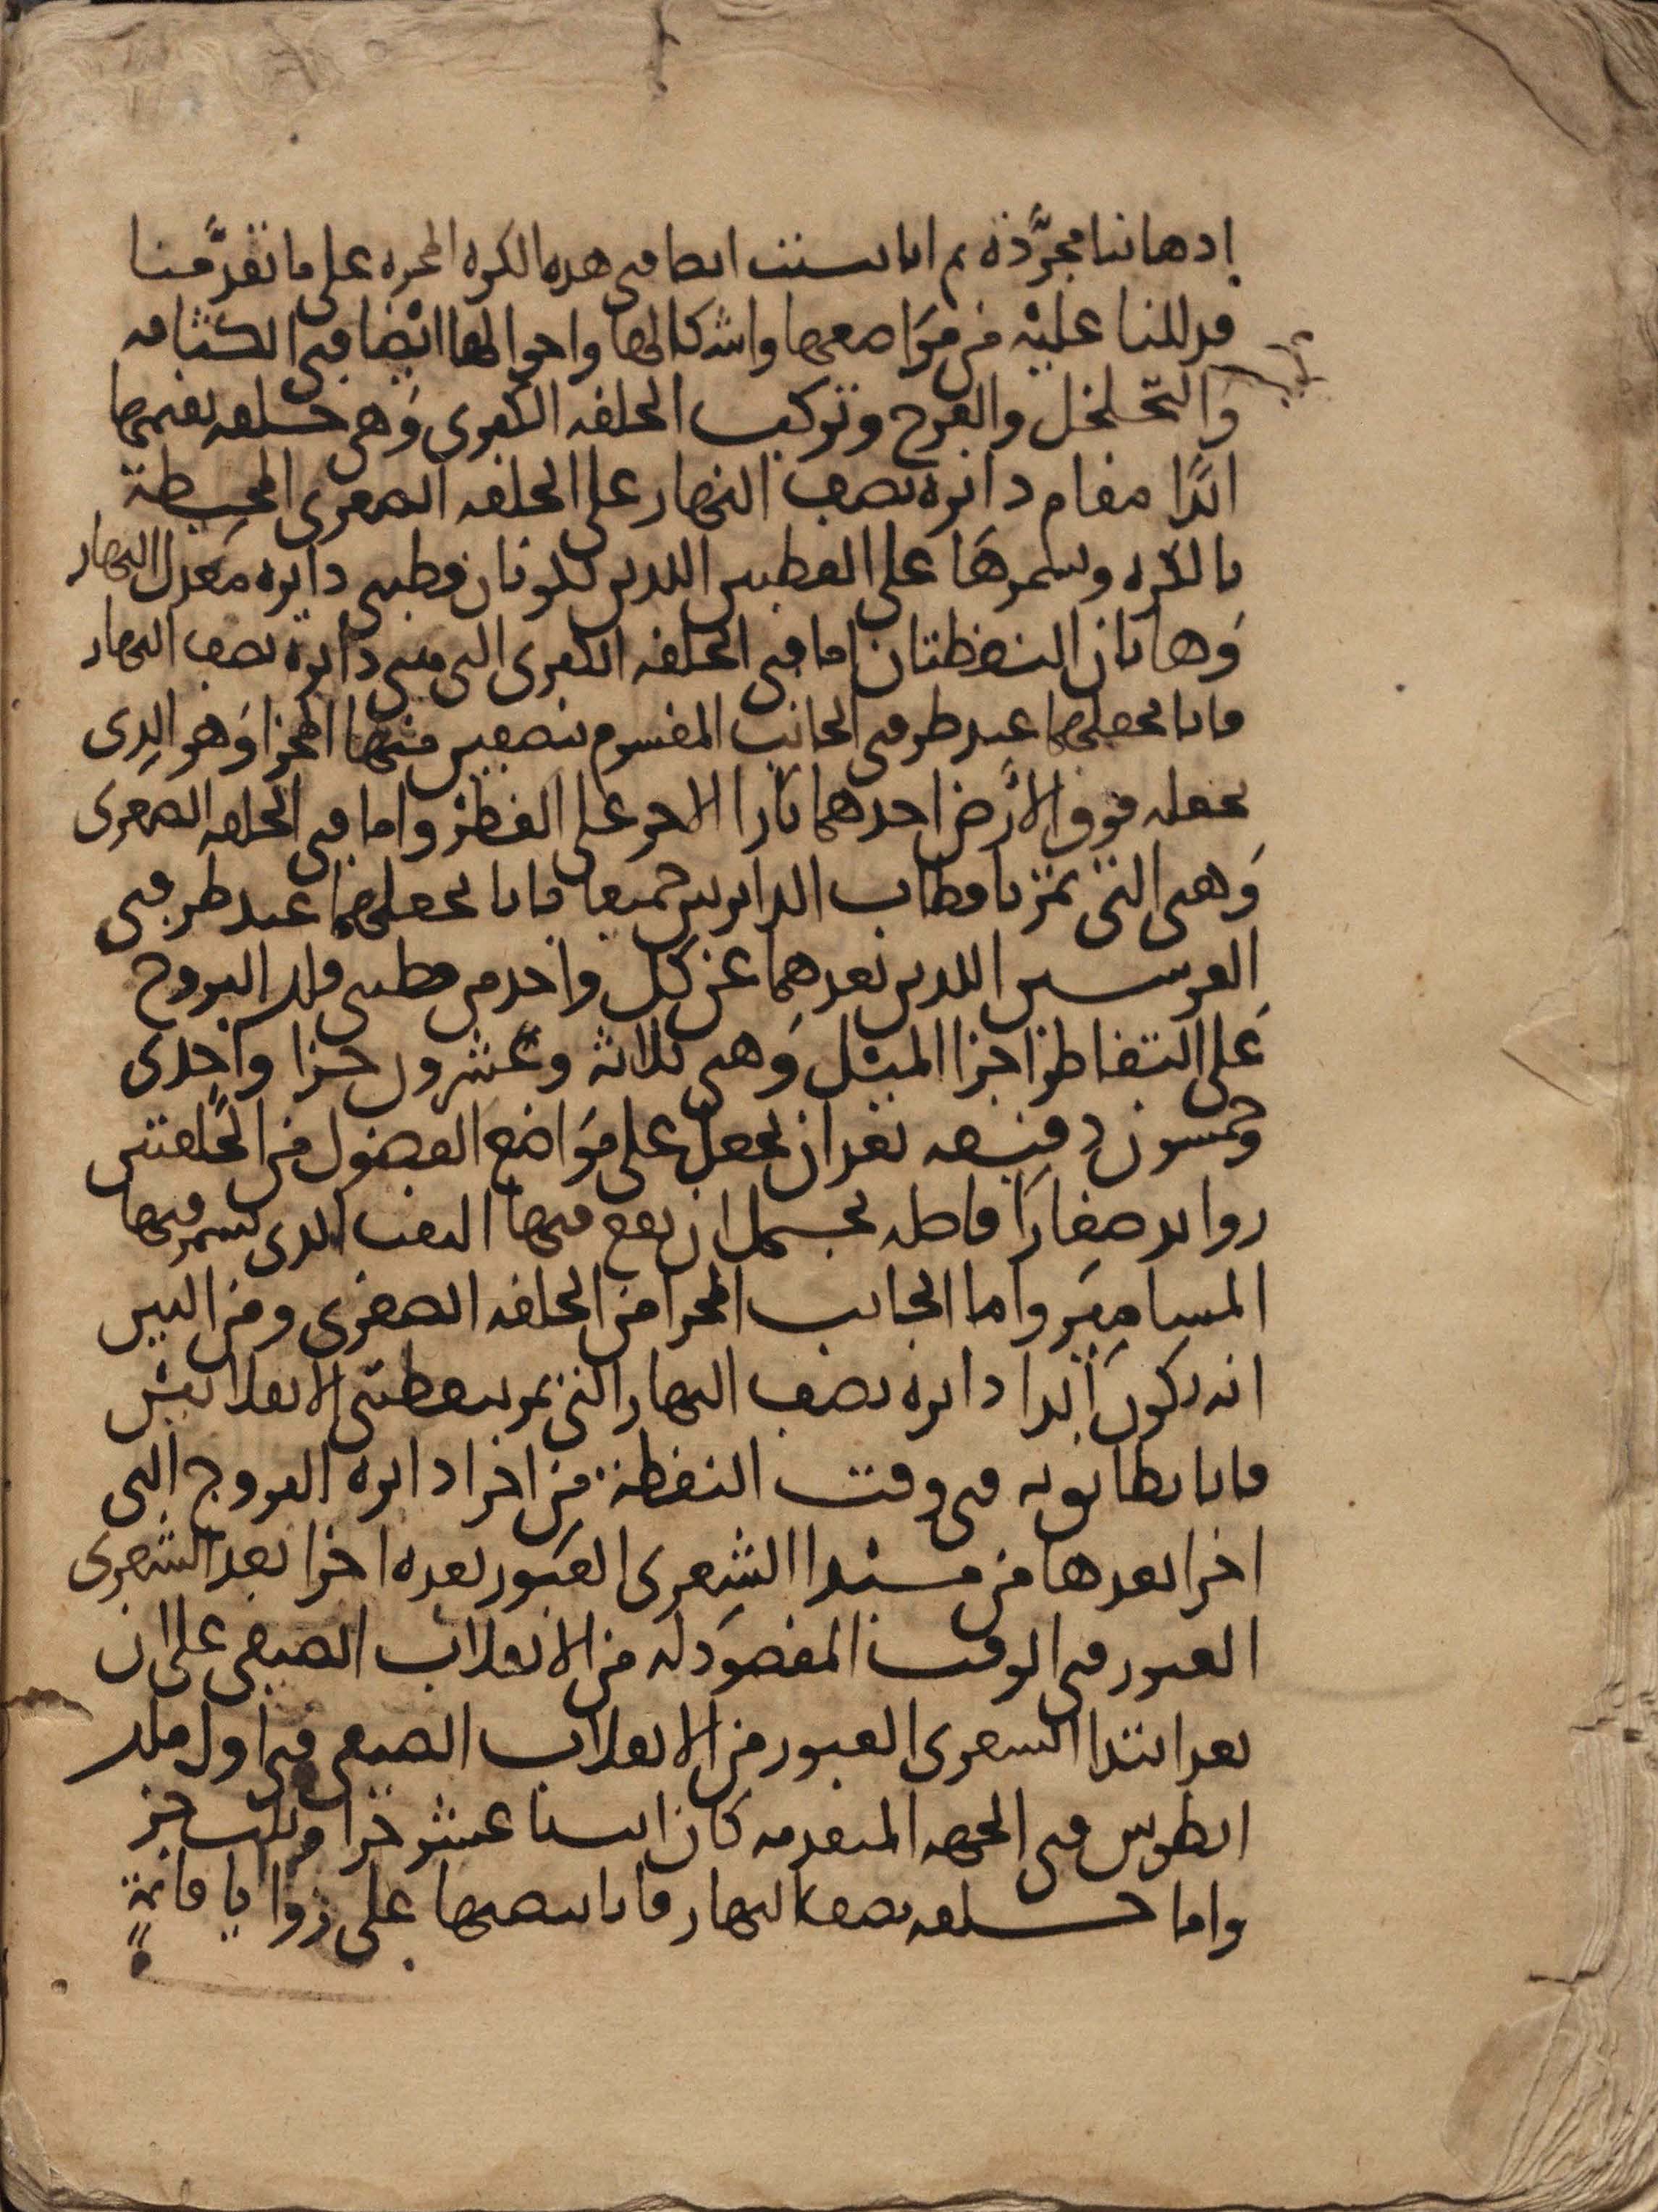 اذهاننا مجردة ثم انا نسنت ايضا في هذه الكره المجره على ما تقدمنا
فدللنا عليه من مواضعها واشكالها واحوالها ايضا في الكثافه
والتخلخل والفرج وتركيب الحلقه الكبرى وهي حلقه نقيمها
ابدا مقام دائره نصف النهار على الحلقه الصغرى المحيطة
بالكره ونسمرها على القطبين اللذين يكونان قطبي دايره معدل النهار
وهاتان النقطتان اما في الحلقه الكبرى التي هي دايرة نصف النهار
فانا نجعلهما عند طرفي الجانب المقسوم بنصفين منها المجزا وهو الذي
نجعله فوق الارض احدهما بازا الاخر على القطر واما في الحلقه الصغرى
وهي التي تمر باقطاب الدايرتين جميعا فانا نجعلهما عند طرفي
القوسين اللذين بعدهما عن كل واحد من قطبي فلك البروج
على التقاطر اجزا الميل وهي ثلاثه وعشرون جزا واحدى
وخمسون دقيقه بعد ان نجعل على مواضع الفضول من الحلقتين
زوايد صغارا فاضله يحتمل ان يقع فيها الثقب الذي تسمر فيها
المسامير واما الجانب المجزا من الحلقه الصغرى ومن البين
انه يكون ابدا دايره نصف النهار التي تمر بنقطتي الانقلابين
فانا نطابق به في وقت النقطة من اجزا دايره البروج التي
اجزا بعدها من مبتدا الشعرى العبور بعده اجزا بعد الشعرى
العبور في الوقت المقصود له من الانقلاب الصيفي على ان
بعد ابتدا الشعرى العبور من الانقلاب الصيفي في اول ملك
انطونس في الجهه المتقدمه كان اثنا عشر جزا وثلث جز
واما حلقه نصف النهار فانا ننصبها على زوايا قائمة